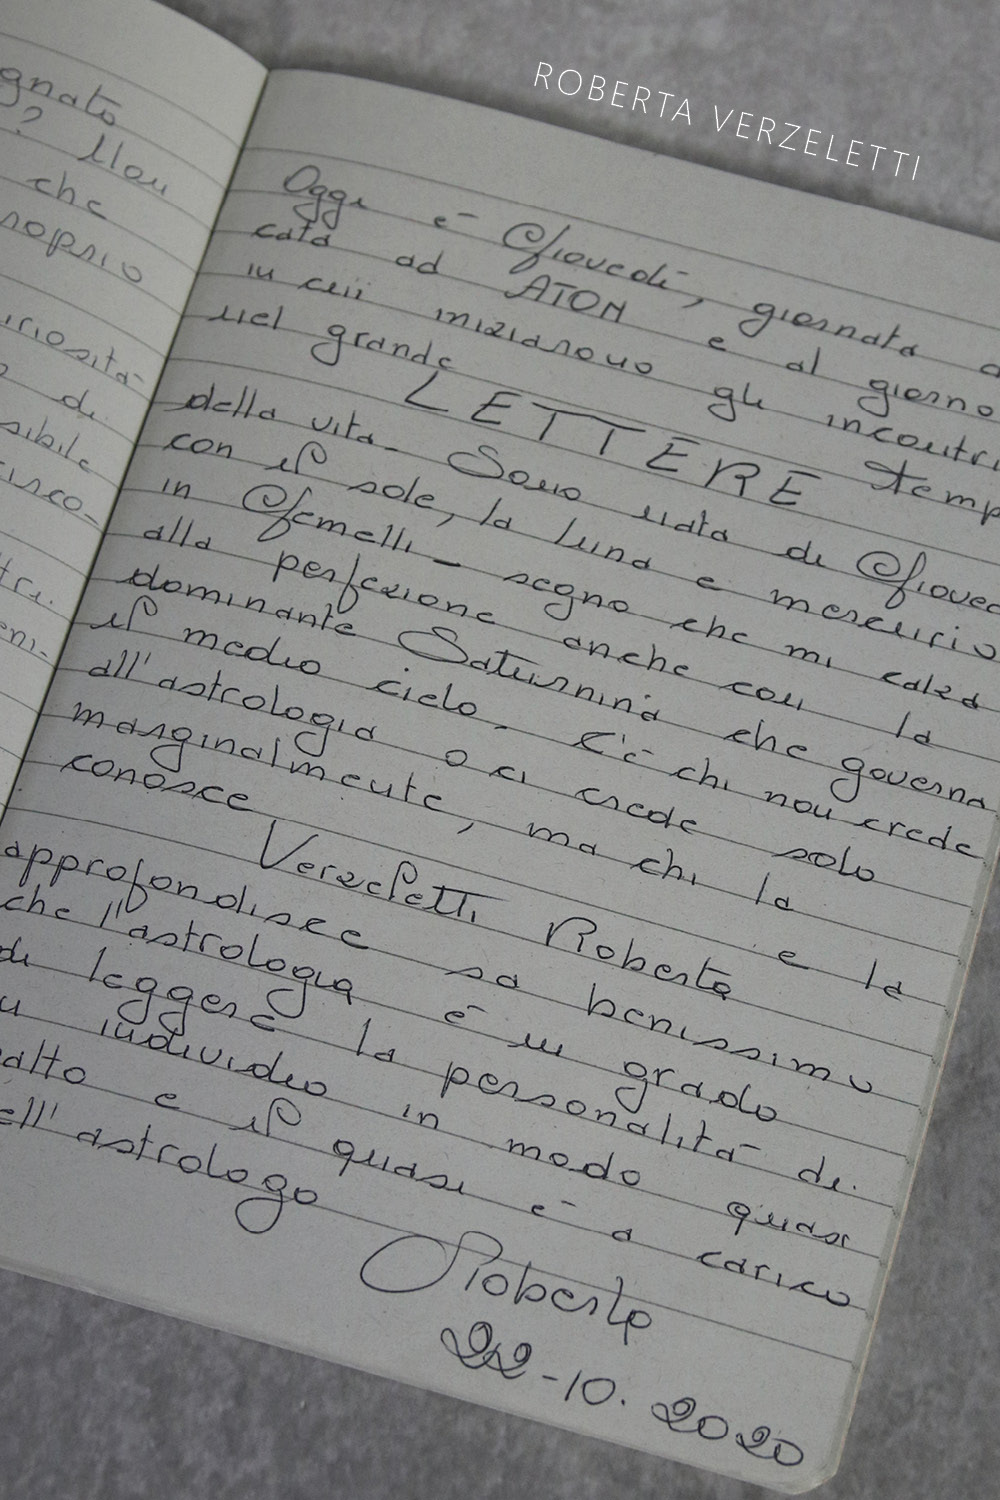 ROBERTA VERZELETTI
gnato
? Mau
che
roprio
iriosità
di
sibile
cisco-
tri.
Oggi è Giovedì, giornata
cata ad ATON e al giorno
in cui iniziarono gli incontri
nel grande
LETTERE Temp
della vita - Sono nata di Gioved
con il sole, la luna e mercurio
in Gemelli - segno che mi calza
alla perfezione anche con la
dominante Saturnina che governa
il medio cielo - C'è chi non crede
all'astrologia o ci crede solo
marginalmente, ma chi la
conosce e la
Verzeletti Roberta
approfondisce sa benissimo
che l'astrologia è in grado
di leggere la personalità di
u individuo in modo quasi
alto e il quasi è a carico
ell'astrologo
Roberta
22-10.2020